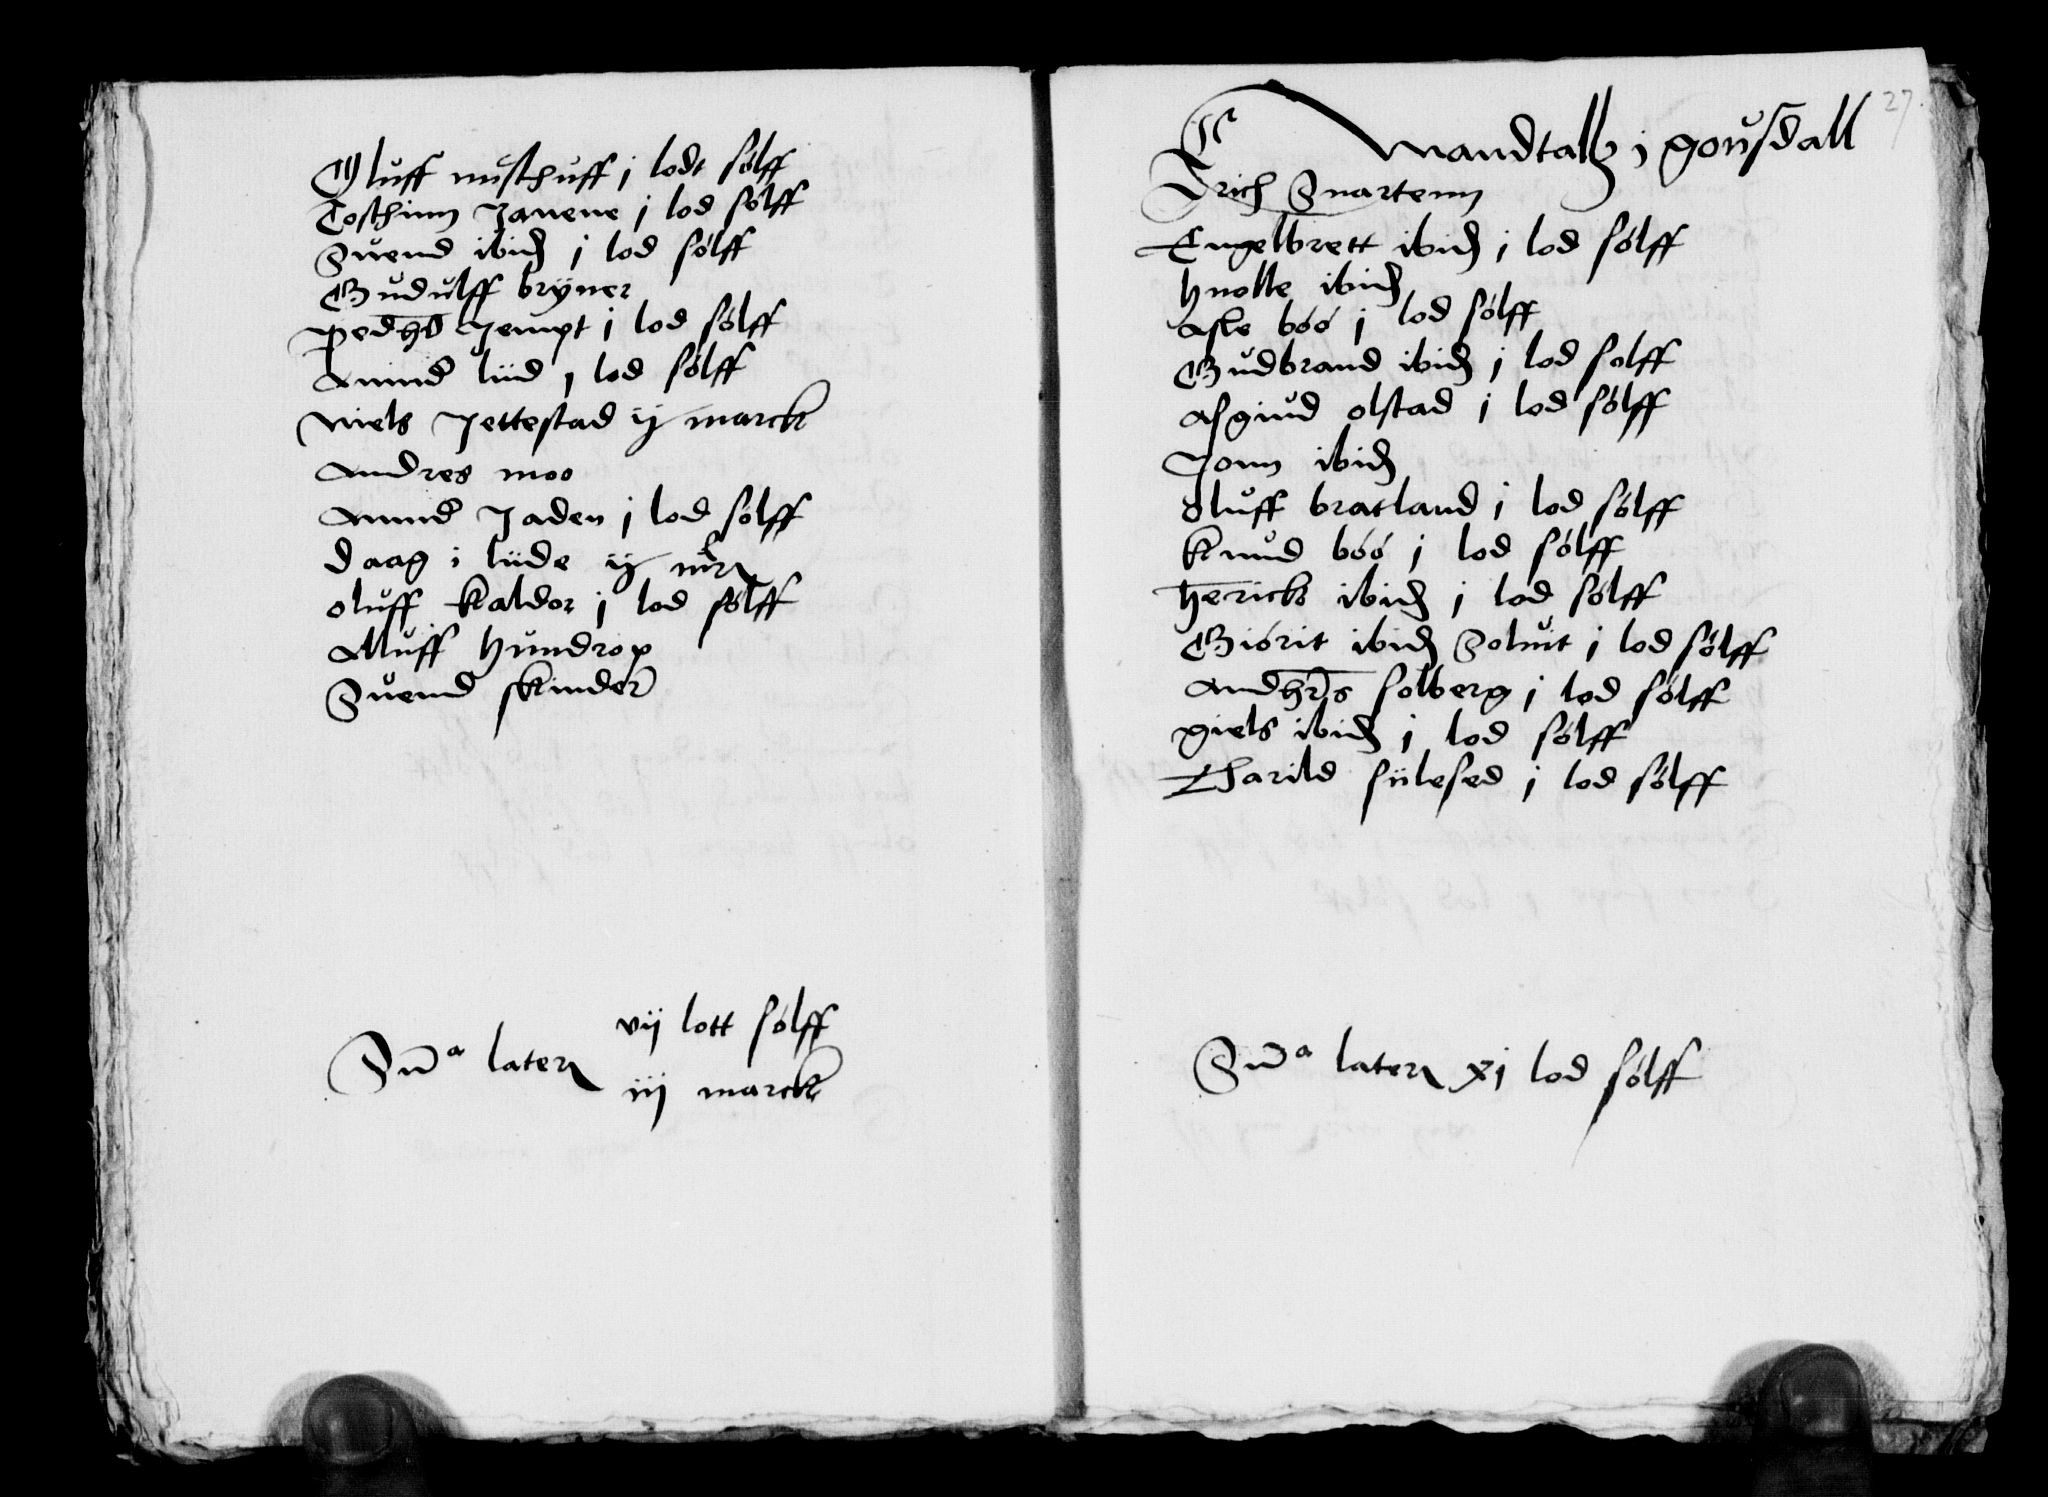 Oluff musthuff j lodt sølff
Tosthinn Janene j lod sølff
Suend ibid j lod sølff
Gudulff bryner
peders Jempt j lod sølff
Amund liid j lod sølff
niels Jettestad ij marck
Andres moo
Amund Jaden j lod sølff
Daag i liide ij mrk
oluff kaldor j lod sølff
Alluff hundrop
Suend skinder
Sum a later
vij lott sølff
iij marck
27.
Mandtall j gousdall
Erich Suartem
Engelbrett ibid j lod sølff
hnolle ibid
Asle bóó j lod sølff
Gudbrand ibid j lod sølff
Asgiud olstad j lod sølff
Jonn ibid
oluff bratland j lod sølff
knud bóó j lod sølff
hericks ibid j lod sølff
Giórit ibid Soluit j lod sølff
Andhrs solberg j lod sølff
giels ibid j lod sølff
Tharild siilesed j lod sølff
Sum a later xj lod sølff